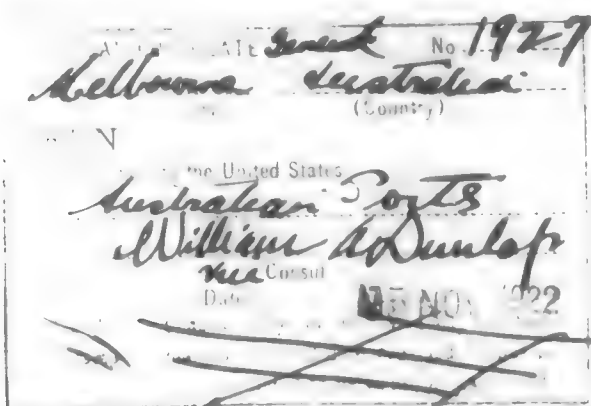 No 1927
Melbourne Australia
(Country)
the United States
Australian Ports
William A Dunlap
Vice Consul
Date NOV 1922